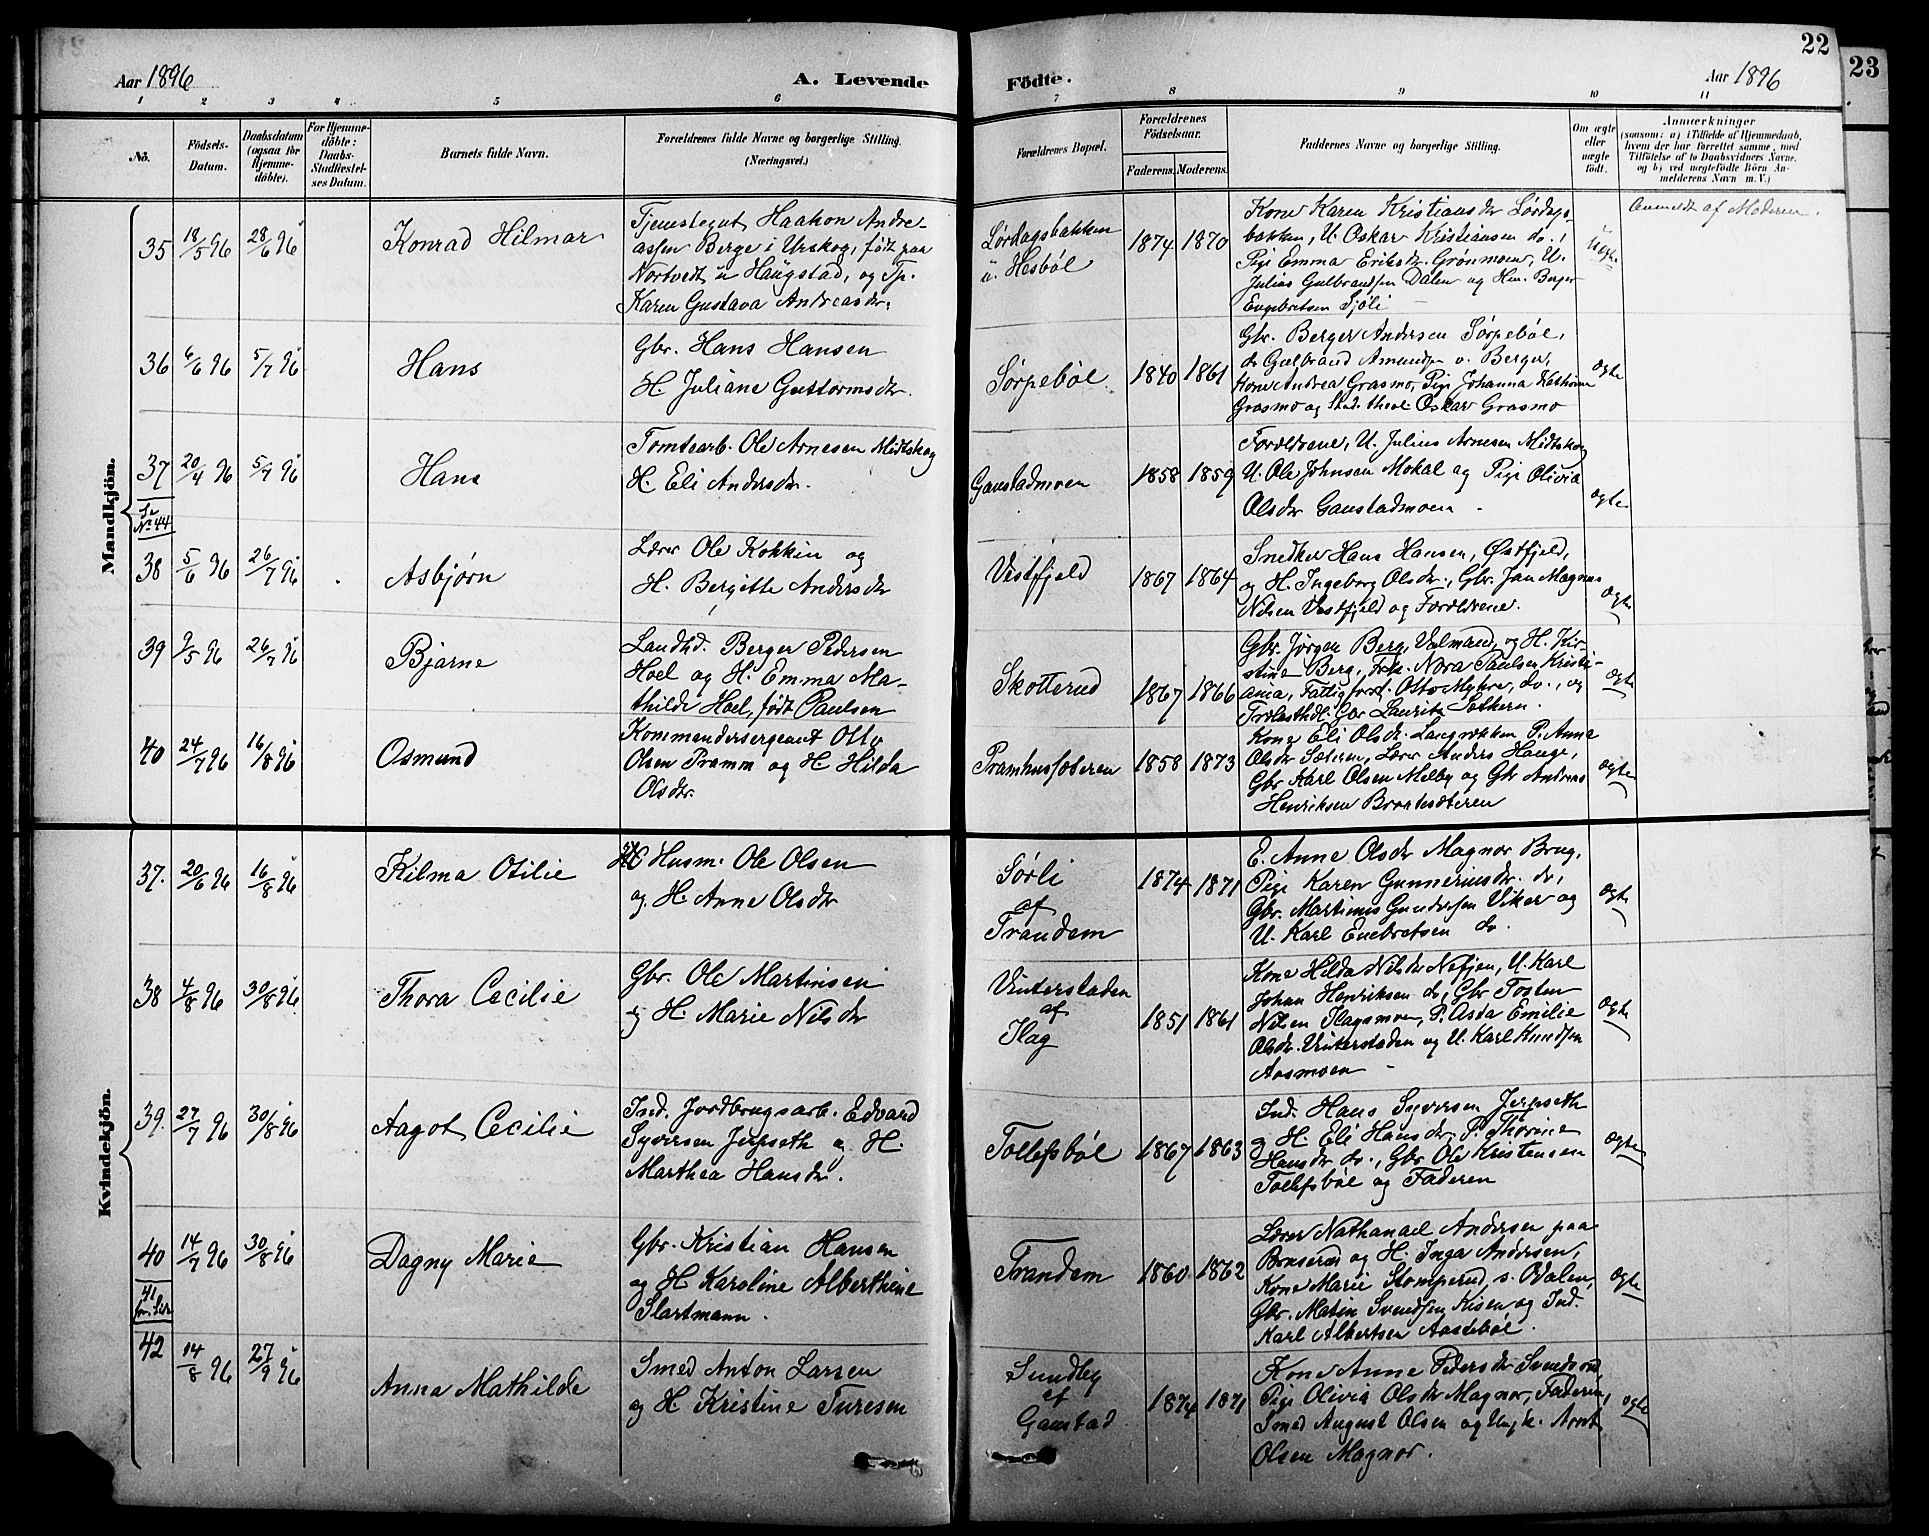 22
23
Aar 1896
A. Levende
Födte.
Aar 1896
1 2 3 4 5 6 7 8 9 10 11
No.
Födsels-Datum.
Daabsdatum (ogsaa for Hjemme-döbte).
For Hjemme-döbte: Daabs-Stadfæstel-ses Datum.
Barnets fulde Navn.
Forældrenes fulde Navne og borgerlige Stilling.
(Næringsvei.)
Forældrenes Bopæl.
Forældrenes Födselsaar.
Faderens. Moderens.
Faddernes Navne og borgerlige Stilling.
Om ægte eller uægte födt.
Anmærkninger
(saasom: a) i Tilfælde af Hjemmedaab, hvem der har forrettet samme, med Tilföielse af to Daabsvidners Navne, og b) ved uægtefödte Börn An-melderens Navn m. V.)
Mandkjön.
35 18/5 96 28/6 96 Konrad Hilmar
Tjenestegut Haakon Andre-
assen Berge i Urskog, født paa
Nortvedt u. Haugstad, og Tp.
Karen Gustava Andreasdr.
Lørdagsbakken
u. Hesbøl
1874 1870
Kone Karen Kristiansdr Lørdags-
bakken, U. Oskar Kristiansen do.,
Pige Emma Eriksdr. Grønmoen, U.
Julius Gulbrandsen Dalen og Hm. Berger
Engebretsen Sjøli
uægte
Anmeldt af Moderen.
36 6/6 96 5/7 96 Hans
Gbr. Hans Hansen
H. Juliane Guttormsdr.
Sørpebøl 1840 1861
Gbr. Berger Andersen Sørpebøl,
do Gulbrand Amunds. v. Berger,
Kone Andrea Grasmo, Pige Johanna Kathrine
Grasmo og Stud. theol. Oskar Grasmo
ægte
37 20/4 96 5/7 96 Hans
Se No. 44
Tomtearb. Ole Arnesen Midtskog
H. Eli Andersdr.
Gaustadmoen 1858 1859
Forældrene, U. Julius Arnesen Midtskog
U. Ole Johnsen Mokal og Pige Olivia
Olsdr Gaustadmoen
ægte
38 5/6 96 26/7 96 Asbjørn
Lærer Ole Kokkin og
H. Bergitte Andersdr
Vestfjeld 1867 1864
Snedker Hans Hansen, Østfjeld,
og H. Ingeborg Olsdr., Gbr. Jan Magnus
Nilsen Vestfjeld og Forældrene.
ægte
39 9/5 96 26/7 96 Bjarne
Landhd. Berger Pedersen
Hoel og H. Emma Ma-
thilde Hoel, født Paulsen
Skotterud 1867 1866
Gbr. Jørgen Berg, og H. Kir-
stine Berg, Frk. Nora Paulsen Kristi-
ania, Fattigforst. Otto Myhre, do., og
Trælasthdl. Gbr Lauritz Sæthern.
ægte
40 24/7 96 16/8 96 Osmund
Kommandersergeant Otto
Olsen Pramm og H Hilda
Olsdr.
Pramhussæteren 1858 1873
Kone Eli Olsdr. Langnekken P. Anna
Olsdr Sæteren, Lærer Anders Hauge,
Gbr Karl Olsen Melby og Gbr Andreas
Henriksen Braatesæteren
ægte
Kvindekjön.
37. 20/6 96 16/8 96 Kilma Otilie
Husm. Ole Olsen
og H. Anne Olsdr
Sørli
af
Trandem
1874 1871
E. Anne Olsdr Magnor Brug,
Pige Karen Gunneriusdr. do,
Gbr. Martinus Gundersen Viker og
U. Karl Enebretsen do.
ægte
38 4/8 96 30/8 96 Thora Cecilie
Gbr. Ole Martinsen
og H. Marie Nilsdr
Vinterstaden
af
Ilag
1851 1861
Kone Hilda Nilsdr Nefjen, U. Karl
Johan Henriksen do, Gbr Tosten
Nilsen Ilagsmoen, P. Asta Emilie
Olsdr. Vinterstaden og U. Karl Knudsen
Aasmoen
ægte
39. 27/7 96 30/8 96 Aagot Cecilie
Ind. Jordbrugsarb. Edvard
Syversen Jerpseth og H.
Marthea Hansdr.
Tollefsbøl 1867 1863
Ind. Hans Syversen Jerpseth
og H. Eli Hansdr, P. Thorine
Hansdr do., Gbr Ole Kristensen
Tollefsbøl og Faderen
ægte
40 14/7 96 30/8 96 Dagny Marie
Gbr. Kristian Hansen
og H. Karoline Alberthine
Slartmann.
Trandem 1860 1862
Lærer Nathanael Andersen paa
Bruserud og H. Inga Andersen,
Kone Marie Stomperud, s. Odalen,
Gbr. Matin Svendsen Kisen og Ind.
Karl Albertsen Aastebøl.
ægte
41
42 14/8 96 27/9 96 Anna Mathilde
Smed Anton Larsen
og H. Kristine Turesen
Sundby
af
Gaustad
1874 1871
Kone Anne Pedersdr Svendsrud,
Pige Olivia Olsdr Magnor, Faderen,
Smed August Olsen og Ungk. Arnt
Olsen Magnor.
ægte